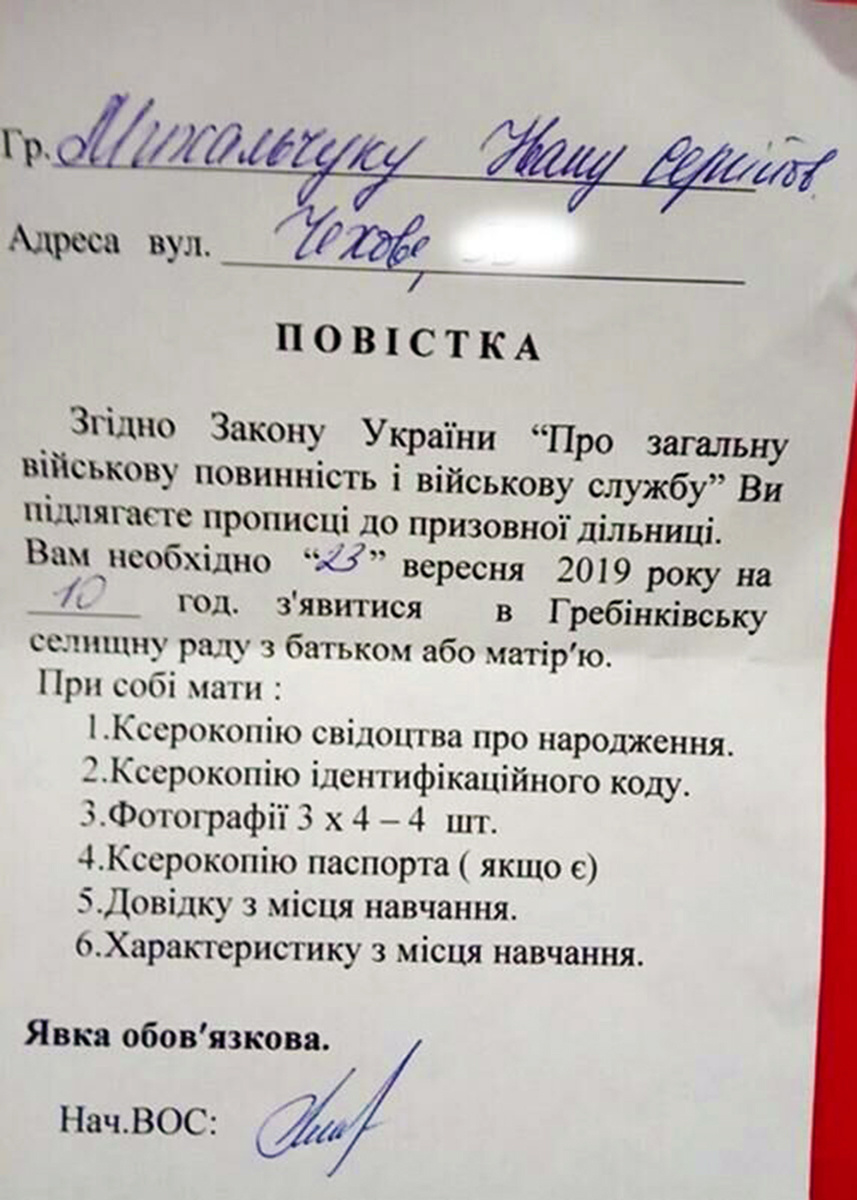 Гр. Михальчуку Івану Сергійов.
Адреса вул. Чехова,
ПОВІСТКА
Згідно Закону України “Про загальну
військову повинність і військову службу” Ви
підлягаєте прописці до призовної дільниці.
Вам необхідно “23” вересня 2019 року на
10 год. з'явитися в Гребінківську
селищну раду з батьком або матір'ю.
При собі мати :
1.Ксерокопію свідоцтва про народження.
2.Ксерокопію ідентифікаційного коду.
3.Фотографії 3 х 4 – 4 шт.
4.Ксерокопію паспорта ( якщо є)
5.Довідку з місця навчання.
6.Характеристику з місця навчання.
Явка обов'язкова.
Нач.ВОС: